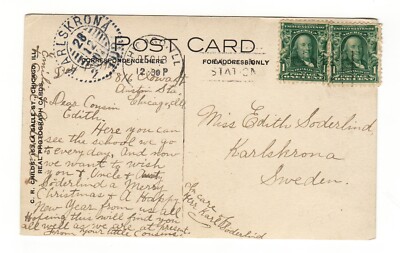 POST CARD
CORRESPONDENCE HERE
FOR ADDRESS ONLY
KARLSKRONA
28
DEC 13
12-30P
STATION
Austin Sta.
Chicago, Ill.
Dear Cousin
Edith,
Here you can
see the school we go
to everyday, And now
we want to wish
you & Uncle & Aunt
Soderlind a Merry
Christmas & A Happy
New Year from us all
Hoping this will find you
all well as we are at present.
From your little Cousins
Miss Edith Soderlind
Karlskrona
Sweden.
In care of
Her Karl Soderlind
1
1
C. R. CHILDS
LA SALLE ST., CHICAGO, ILL.
REAL PHOTOGRAPH CARDS